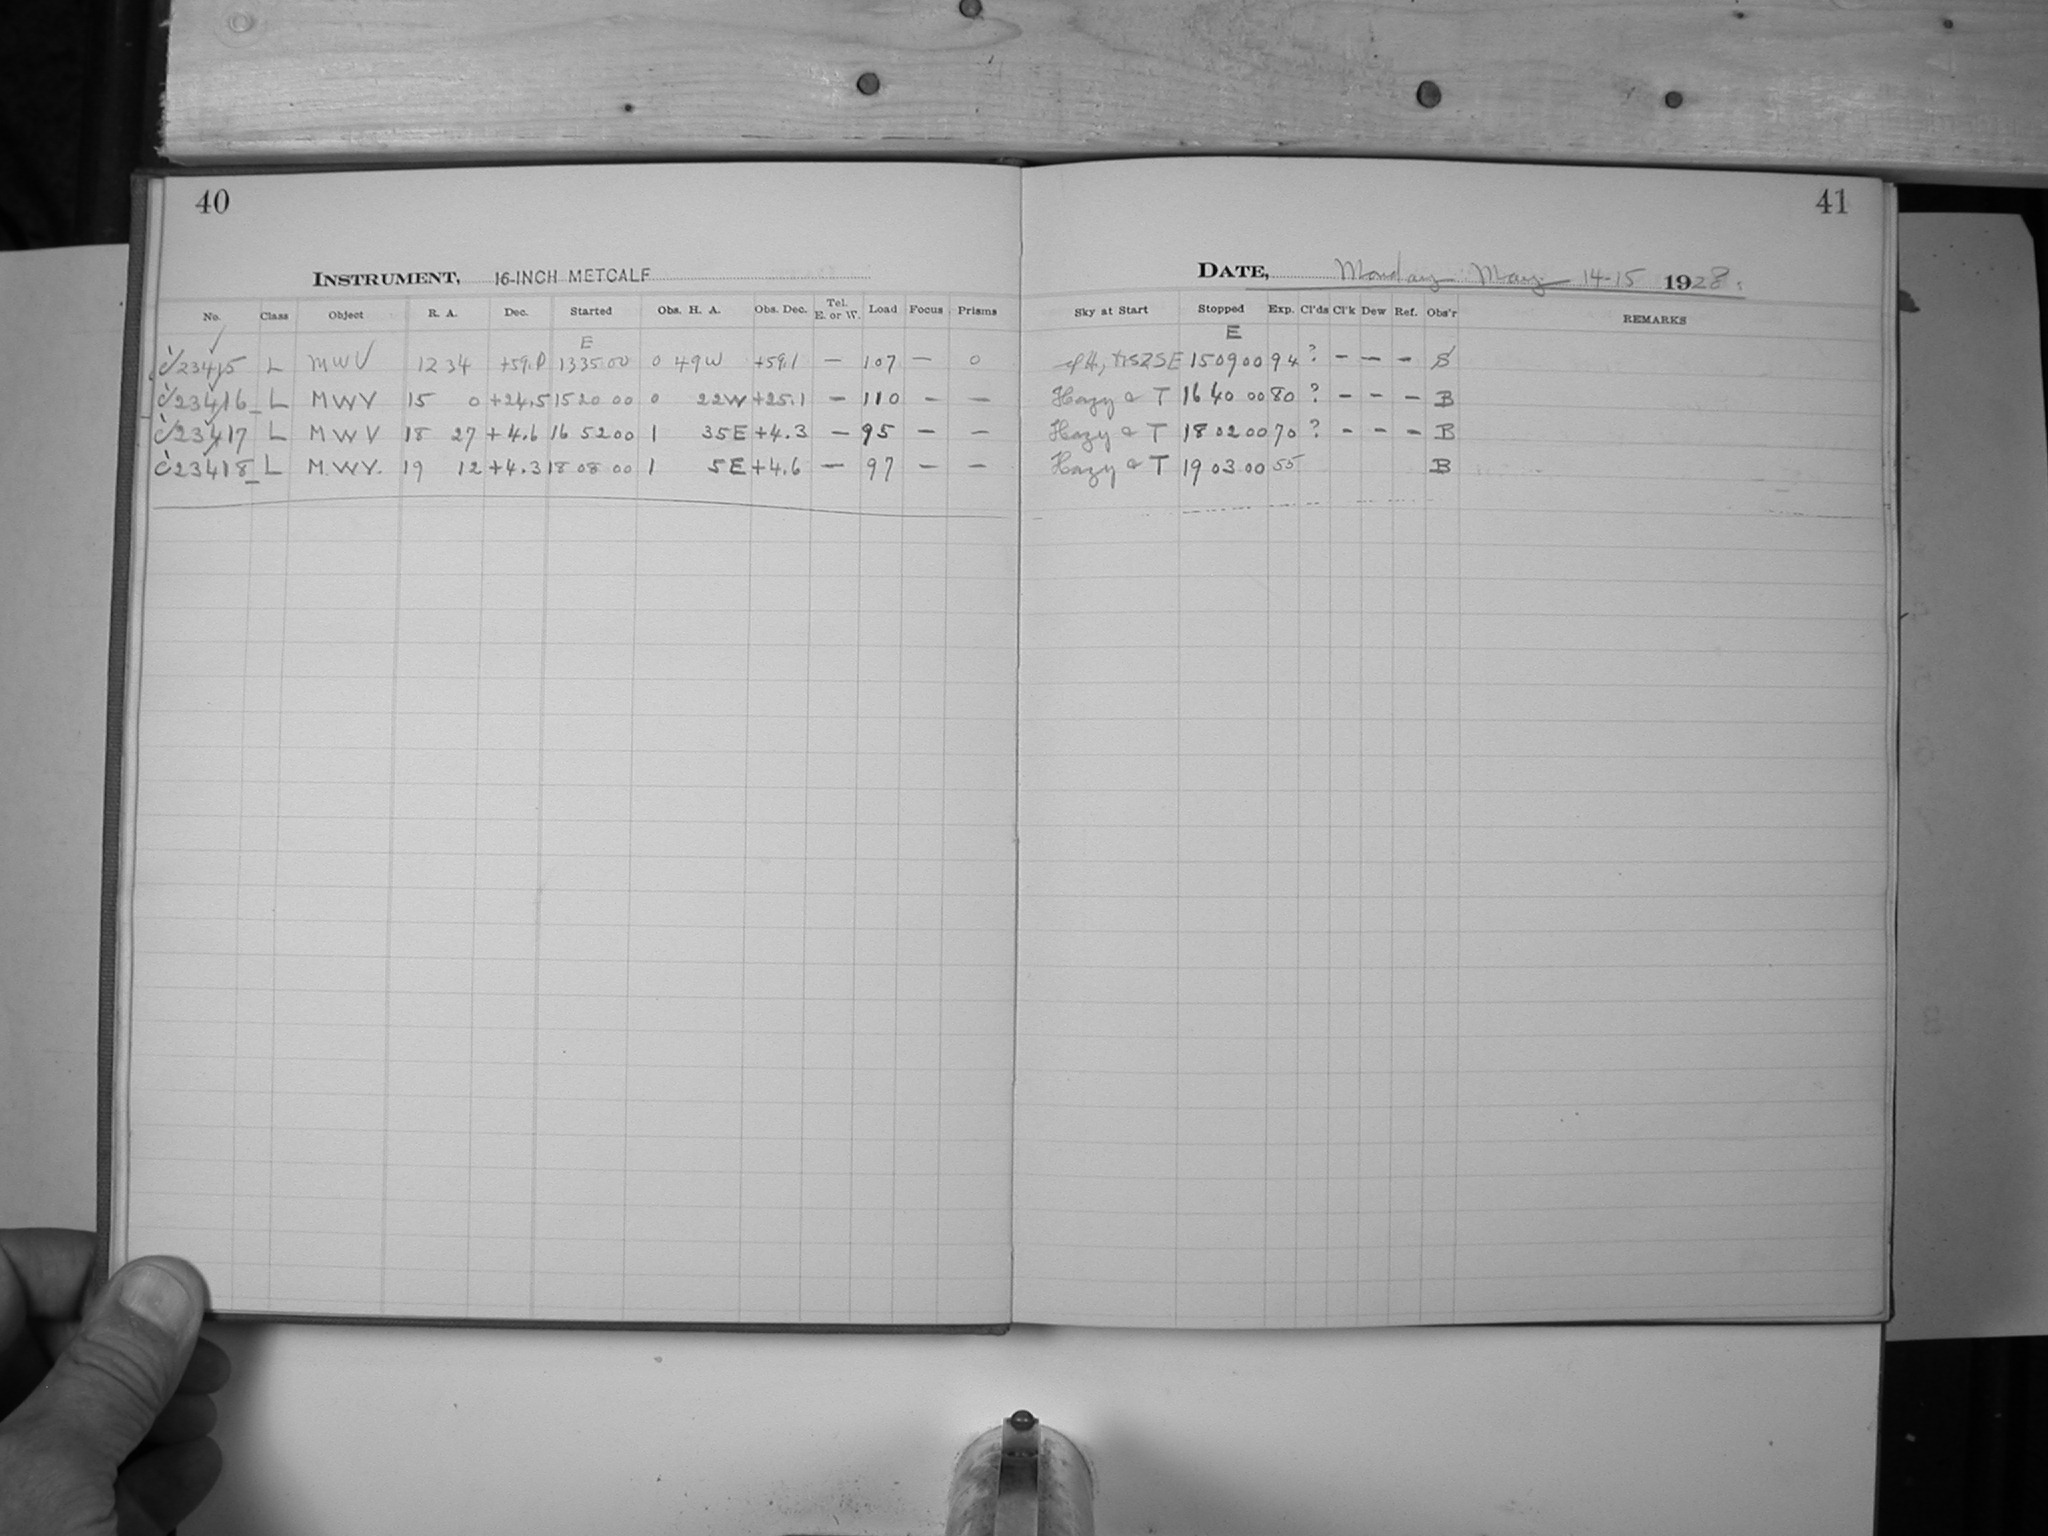 40
INSTRUMENT, 16-INCH METCALF
No. Class Object R. A. Dec. Started Obs. H. A. Obs. Dec. Tel. E. or W. Load Focus Prisms
E
23415 L MWV 12 34 13 35 00 0 49W +59.1 — 107 — 0
23416 L MWV 15 0 +24.5 15 20 00 0 22W +25.1 — 110 — —
23417 L MWV 18 27 +4.6 16 52 00 1 35E +4.3 — 95 — —
23418 L M.W.V. 19 12 +4.3 18 08 00 1 5E +4.6 — 97 — —
41
DATE, Monday May 14-15 1928.
Sky at Start Stopped Exp. Cl'ds Cl'k Dew Ref. Obs'r REMARKS
E
15 09 00 94 ? — — — S
Hazy & T 16 40 00 80 ? — — — B
Hazy & T 18 02 00 70 ? — — — B
Hazy & T 19 03 00 55 B